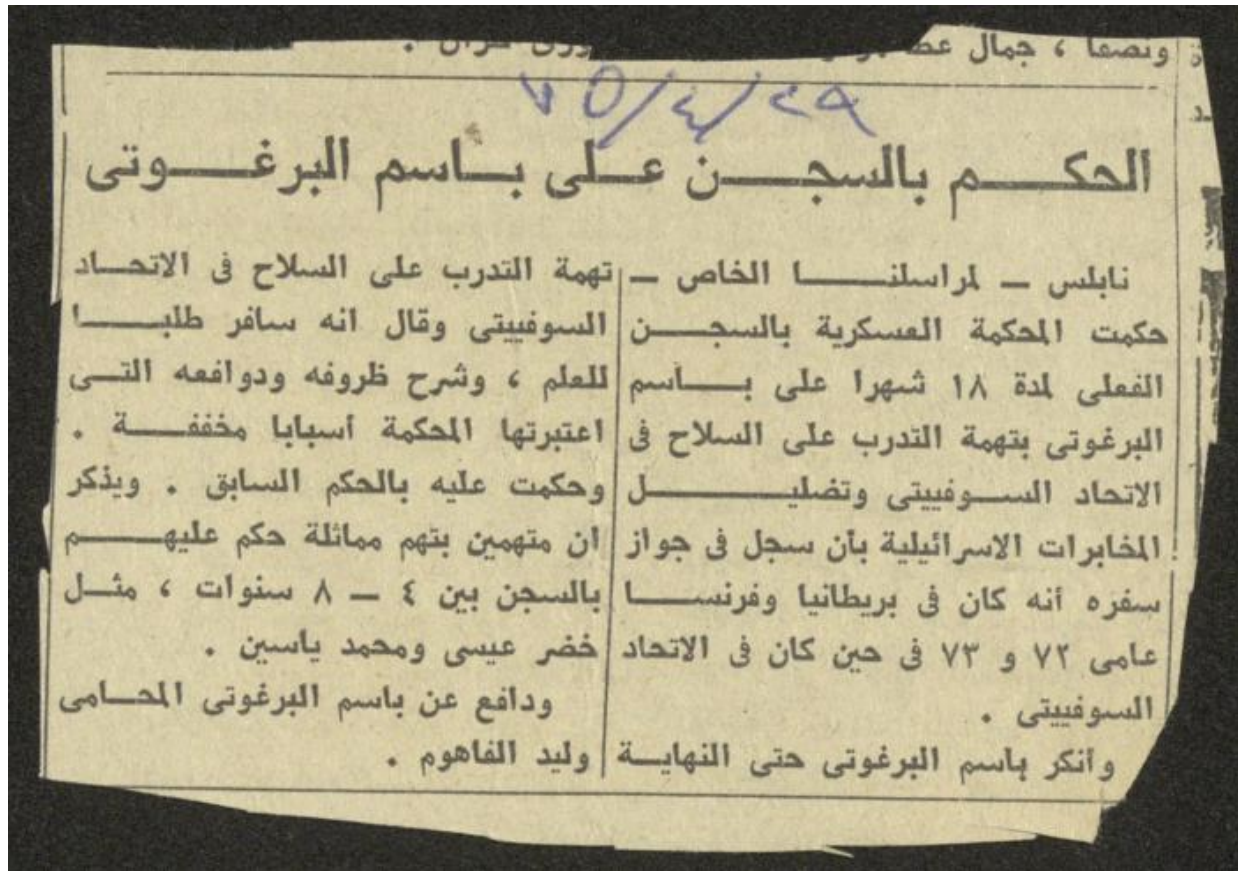 ونصفا ، جمال
٧٥/٤/٢٩
الحكم بالسجن على باسم البرغوتى
نابلس – لمراسلنا الخاص –
حكمت المحكمة العسكرية بالسجن
الفعلى لمدة ١٨ شهرا على باسم
البرغوتى بتهمة التدرب على السلاح فى
الاتحاد السوفييتى وتضليل
المخابرات الاسرائيلية بأن سجل فى جواز
سفره أنه كان فى بريطانيا وفرنسا
عامى ٧٢ و ٧٣ فى حين كان فى الاتحاد
السوفييتى .
وأنكر باسم البرغوتى حتى النهاية
تهمة التدرب على السلاح فى الاتحاد
السوفييتى وقال انه سافر طلبا
للعلم ، وشرح ظروفه ودوافعه التى
اعتبرتها المحكمة أسبابا مخففة .
وحكمت عليه بالحكم السابق . ويذكر
ان متهمين بتهم مماثلة حكم عليهم
بالسجن بين ٤ – ٨ سنوات ، مثل
خضر عيسى ومحمد ياسين .
ودافع عن باسم البرغوتى المحامى
وليد الفاهوم .